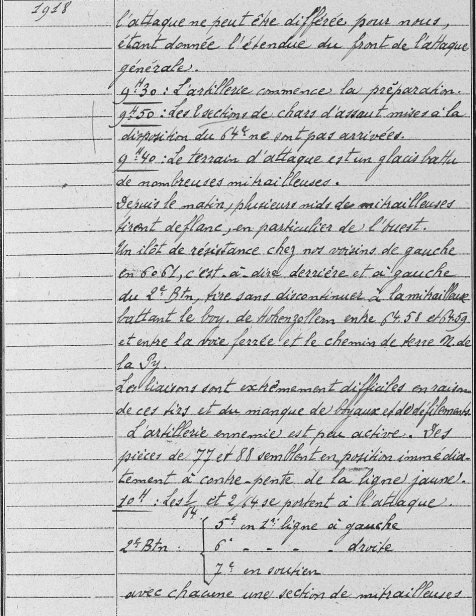 1918
l'attaque ne peut être différée pour nous,
étant donnée l'étendue du front de l'attaque
générale.
9H30 : L'artillerie commence la préparation.
9H50 : Les 2 sections de chars d'assaut mises à la
disposition du 64e ne sont pas arrivées.
9H40 : Le terrain d'attaque est un glacis battu
de nombreuses mitrailleuses.
Depuis le matin, plusieurs nids de mitrailleuses
tirent de flanc, en particulier de l'Ouest.
Un ilôt de résistance chez nos voisins de gauche
en 6061, c'est à dire derrière et à gauche
du 2e Btn, tire sans discontinuer à la mitrailleuse
battant le boy. de Hohenzollern entre 64.58 et 6459
et entre la voie ferrée et le chemin de terre N. de
la Py.
Les liaisons sont extrêmement difficiles en raison
de ces tirs et du manque de boyaux et de défilements
L'artillerie ennemie est peu active. Des
pièces de 77 et 88 semblent en position immédia-
tement à contre-pente de la ligne jaune.
10H : Les 1/64 et 2/64 se portent à l'attaque.
5e en 1re ligne à gauche
2e Btn : 6e - - - - droite
7e en soutien
avec chacune une section de mitrailleuses